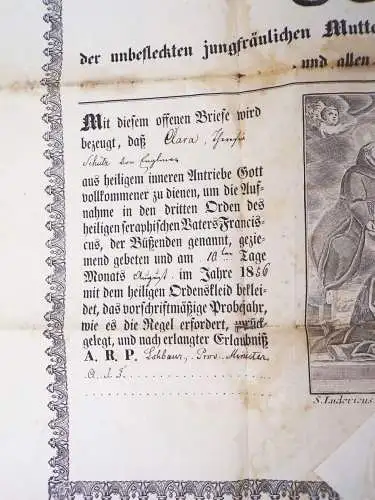 der unbefleckten jungfräulichen Mutte
und allen
Mit diesem offenen Briefe wird
bezeugt, daß Clara,
Schutz von
aus heiligem inneren Antriebe Gott
vollkommener zu dienen, um die Auf-
nahme in den dritten Orden des
heiligen seraphischen Vaters Francis-
cus, der Büßenden genannt, gezie-
mend gebeten und am 10ten Tage
Monats August im Jahre 1856
mit dem heiligen Ordenskleid beklei-
det, das vorschriftmäßige Probjahr,
wie es die Regel erfordert, zurück-
gelegt, und nach erlangter Erlaubniß
A. R. P. Lohbaur, Prov. Minister
S. Ludovicus